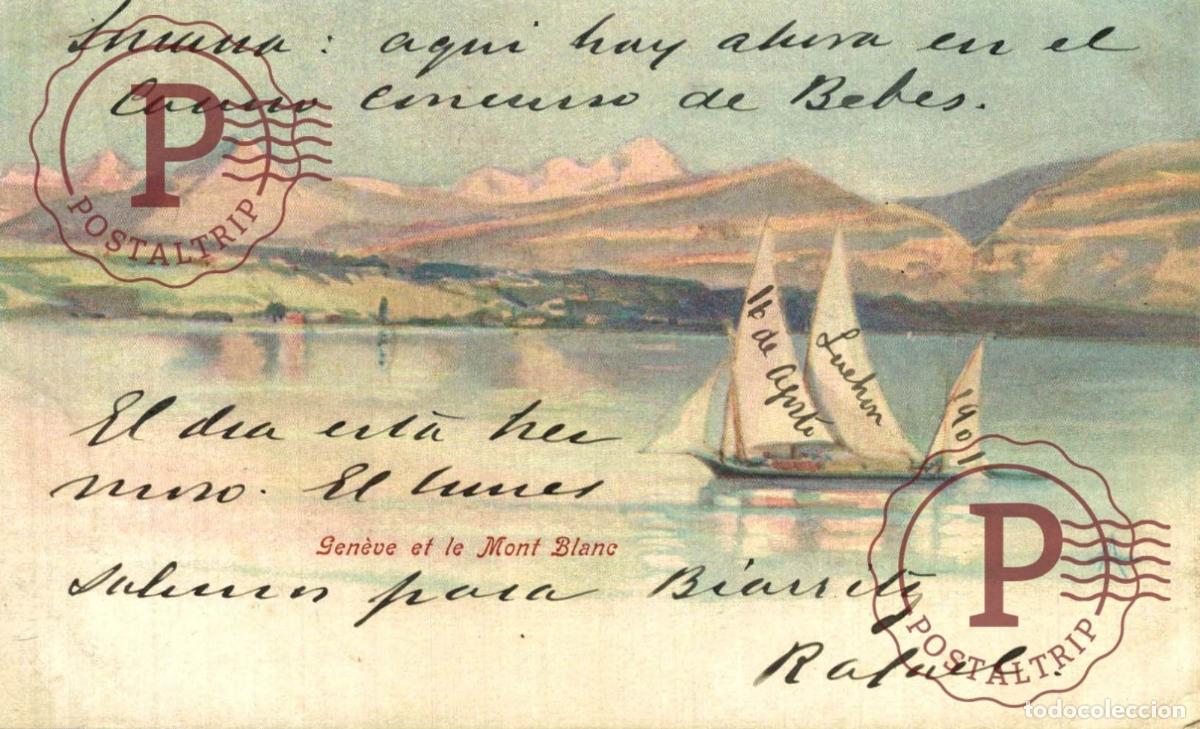 Susana: aqui hay ahora en el
Casino concurso de Bebes.
P
POSTALTRIP
16 de Agosto
Luchon
1901
El dia está her
moso. El lunes
Genève et le Mont Blanc
salimos para Biarritz
Rafael.
P
POSTALTRIP
todocoleccion